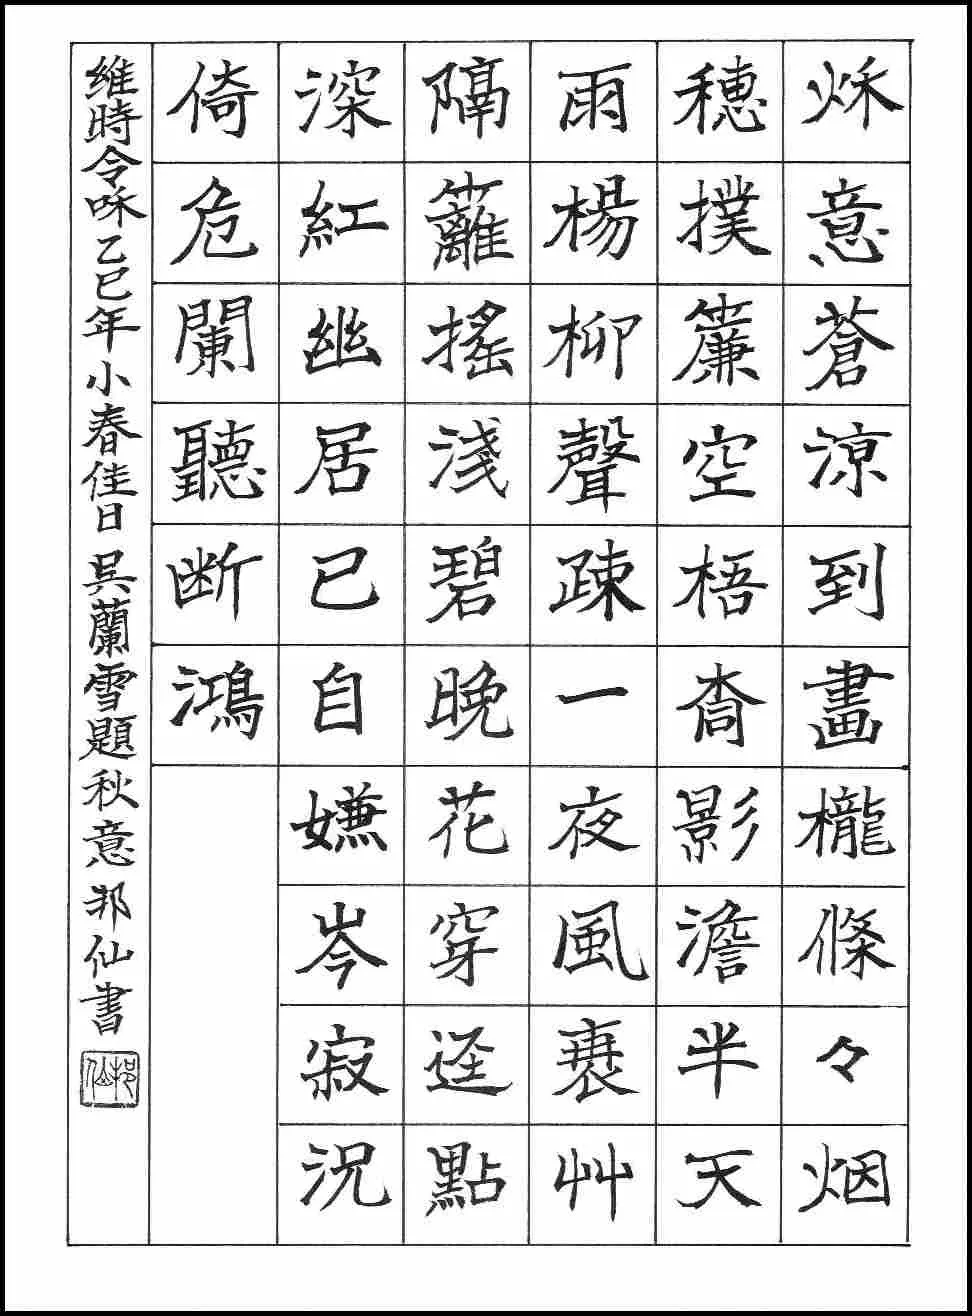 秌意蒼涼到畫櫳條々烟
穗撲簾空梧喬影澹半天
雨楊柳聲疎一夜風衰艸
隔籬搖淺碧晚花穿逕點
深紅幽居已自嫌岑寂況
倚危闌聽断鴻
維時令咊乙巳年小春佳日 呉蘭雪題秋意 邦仙書
邦仙